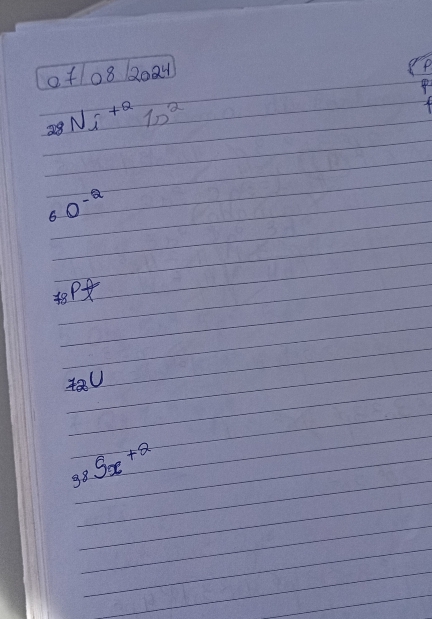 07/08/2024
28Ni+2 1s2
6O-2
78Pt
72U
38Sr+2